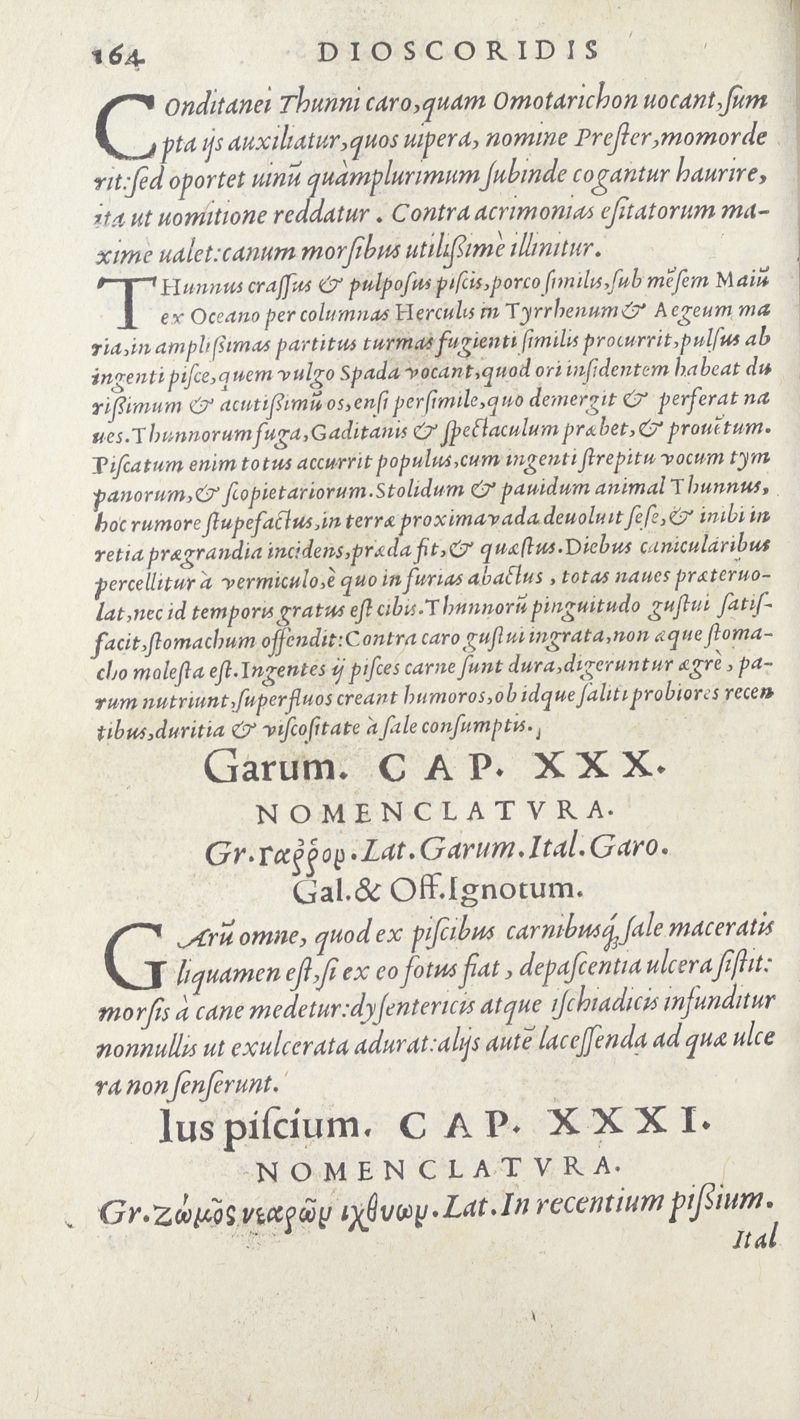 164 DIOSCORIDIS
COnditanei Thunni caro,quam Omotarichon uocant,ſum
pta ijs auxiliatur,quos uipera, nomine Preſter,momorde
rit:ſed oportet uinũ quàmplurimum ſubinde cogantur haurire,
ita ut uomitione reddatur . Contra acrimonias eſitatorum ma-
xime ualet:canum morſibus utiliſsimè illinitur.
THunnus craſſus & pulpoſus piſcis,porco ſimilis,ſub mẽſem Maiũ
ex Oceano per columnas Herculis in Tyrrhenum & Aegeum ma
ria,in ampliſsimas partitus turmas fugienti ſimilis procurrit,pulſus ab
ingenti piſce,quem vulgo Spada vocant,quod ori inſidentem habeat du
riſsimum & acutiſsimũ os,enſi perſimile,quo demergit & perferat na
ues.Thunnorum fuga,Gaditanis & ſpectaculum præbet,& prouẽtum.
Piſcatum enim totus accurrit populus,cum ingenti ſtrepitu vocum tym
panorum,& ſcopietariorum.Stolidum & pauidum animal Thunnus,
hoc rumore ſtupefactus,in terræ proxima vada deuoluit ſeſe,& inibi in
retia prægrandia incidens,præda fit,& quæſtus.Diebus canicularibus
percellitur à vermiculo,è quo in furias abactus , totas naues præteruo-
lat,nec id temporis gratus eſt cibis.Thunnorũ pinguitudo guſtui ſatiſ-
facit,ſtomachum offendit:Contra caro guſtui ingrata,non æque ſtoma-
cho moleſta eſt.Ingentes ij piſces carne ſunt dura,digeruntur ægrè , pa-
rum nutriunt,ſuperfluos creant humoros,ob idque ſaliti probiores recen
tibus,duritia & viſcoſitate à ſale conſumptis.
Garum. CAP. XXX.
NOMENCLATVRA.
Gr.Γαῤῥον.Lat.Garum.Ital.Garo.
Gal.& Off.Ignotum.
GArũ omne, quod ex piſcibus carnibusq́ꝫ ſale maceratis
liquamen eſt,ſi ex eo fotus fiat , depaſcentia ulcera ſiſtit:
morſis à cane medetur:dyſentericis atque iſchiadicis infunditur
nonnullis ut exulcerata adurat:alijs autẽ laceſſenda ad quæ ulce
ra non ſenſerunt.
Ius piſcium. CAP. XXXI.
NOMENCLATVRA.
Gr.Ζώμο͂ς νεαρῶν ιχθυων.Lat.In recentium piſsium.
Ital